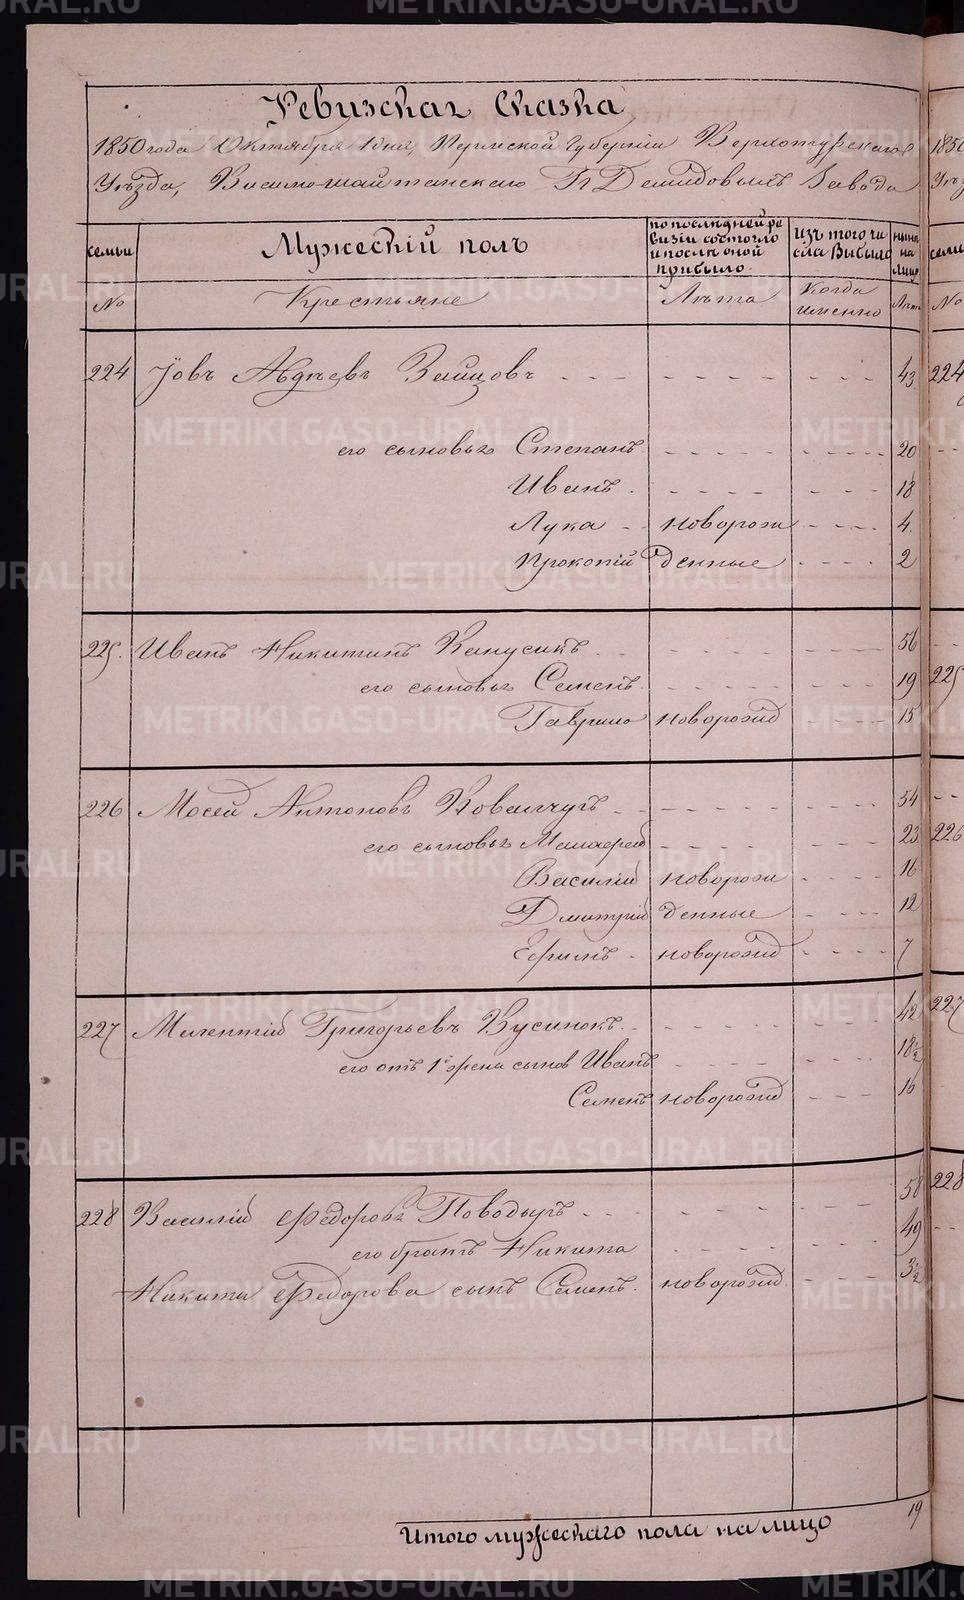 Ревизская Сказка
1850 года Октября 1 дня, Пермской Губерніи Верхотурскаго
Уѣзда, Висимошайтанскаго Гг Демидовыхъ Завода
семьи
Мужескій полъ
по последней ре
визіи состояло
и после оной
прибыло.
Изъ того чи
сла Выбыло
ныне
на
лицо
№
Крестьяне
Лѣта
Когда
именно
Лѣта
224 Іовъ Авдѣевъ Зайцовъ 43 224
его сыновья Степанъ 20
Иванъ 18
Лука новорож 4
Прокопій денные 2
225. Иванъ Никитинъ Канусикъ 56
его сыновья Семенъ 19 225
Гаврило новорожд 15
226 Мосей Антоновъ Ковальчугъ 54
его сыновья 23 226
Василій новорож 16
Дмитрій денные 12
Ефимъ новорожд 7
227 Милентій Григорьевъ Кусинокъ 42 227
его отъ 1й жены сынов Иванъ 18½
Семенъ новорожд 16
228 Василій Федоровъ Поводырь 58 228
его братъ Никита 49
Никиты Федорова сынъ Семенъ новорожд 3½
Итого мужескаго пола на лицо 19
METRIKI.GASO-URAL.RU